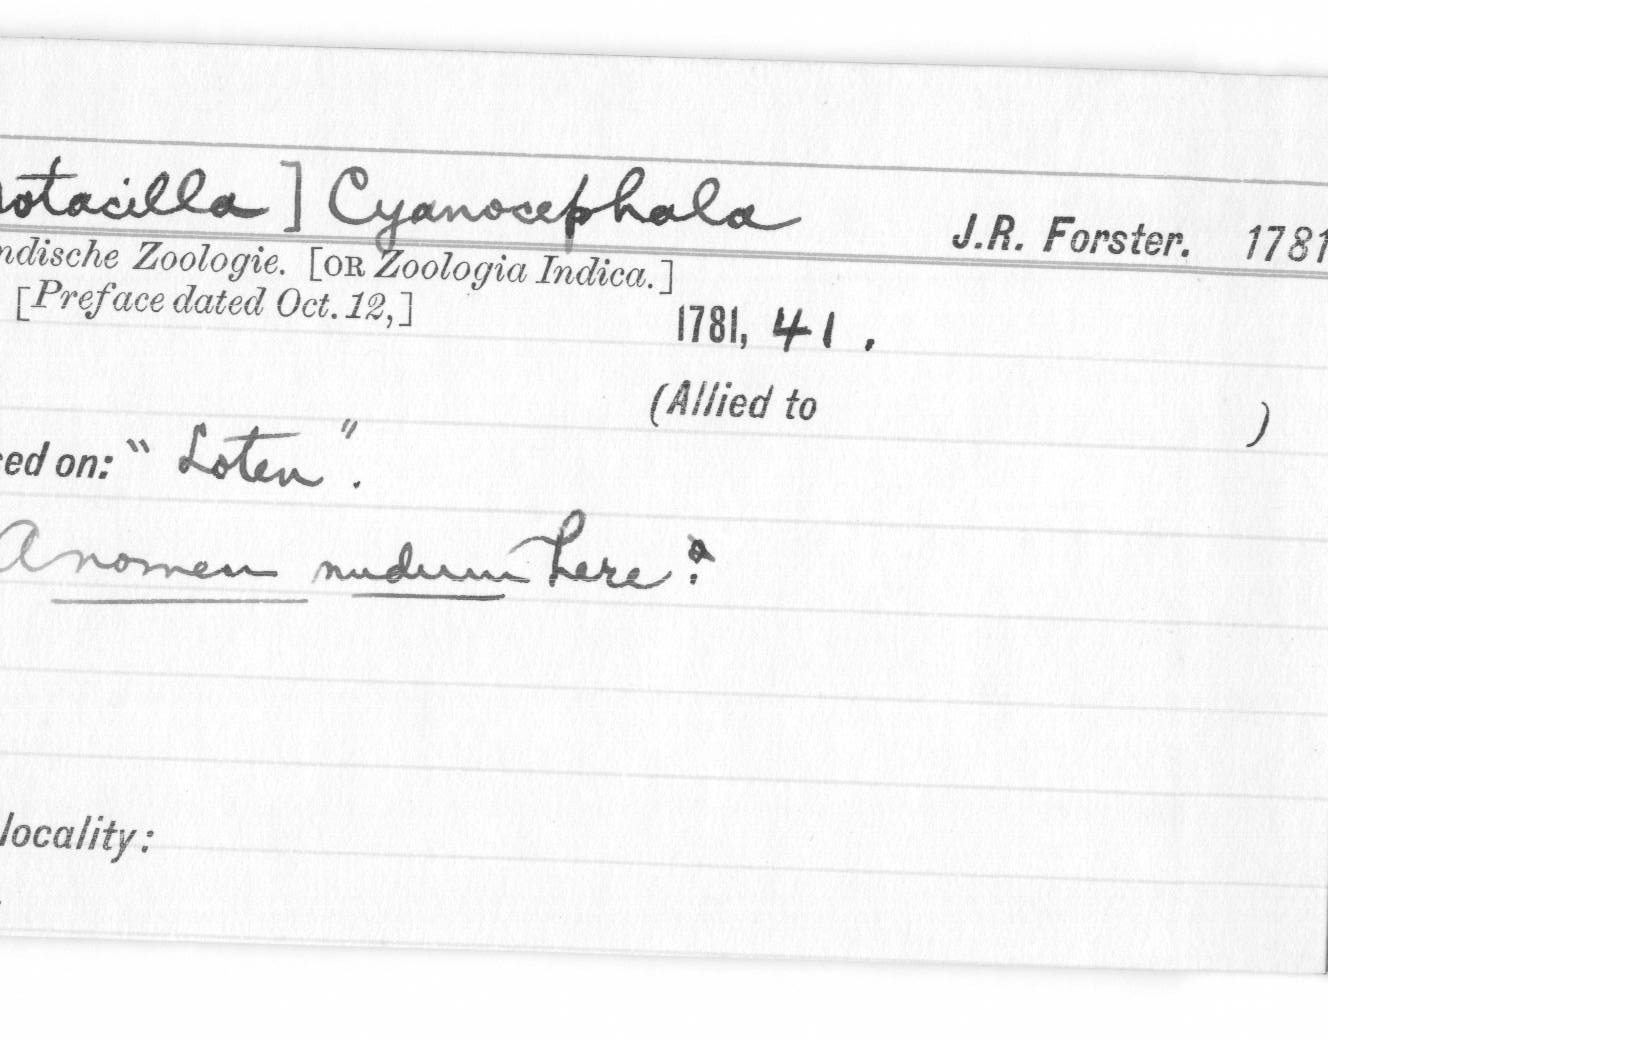 otacilla] Cyanocephala J.R. Forster. 1781
ndische Zoologie. [OR Zoologia Indica.]
[Preface dated Oct. 12,]
1781, 41.
(Allied to )
ed on: "Loten".
A nomen nudum here?
locality: